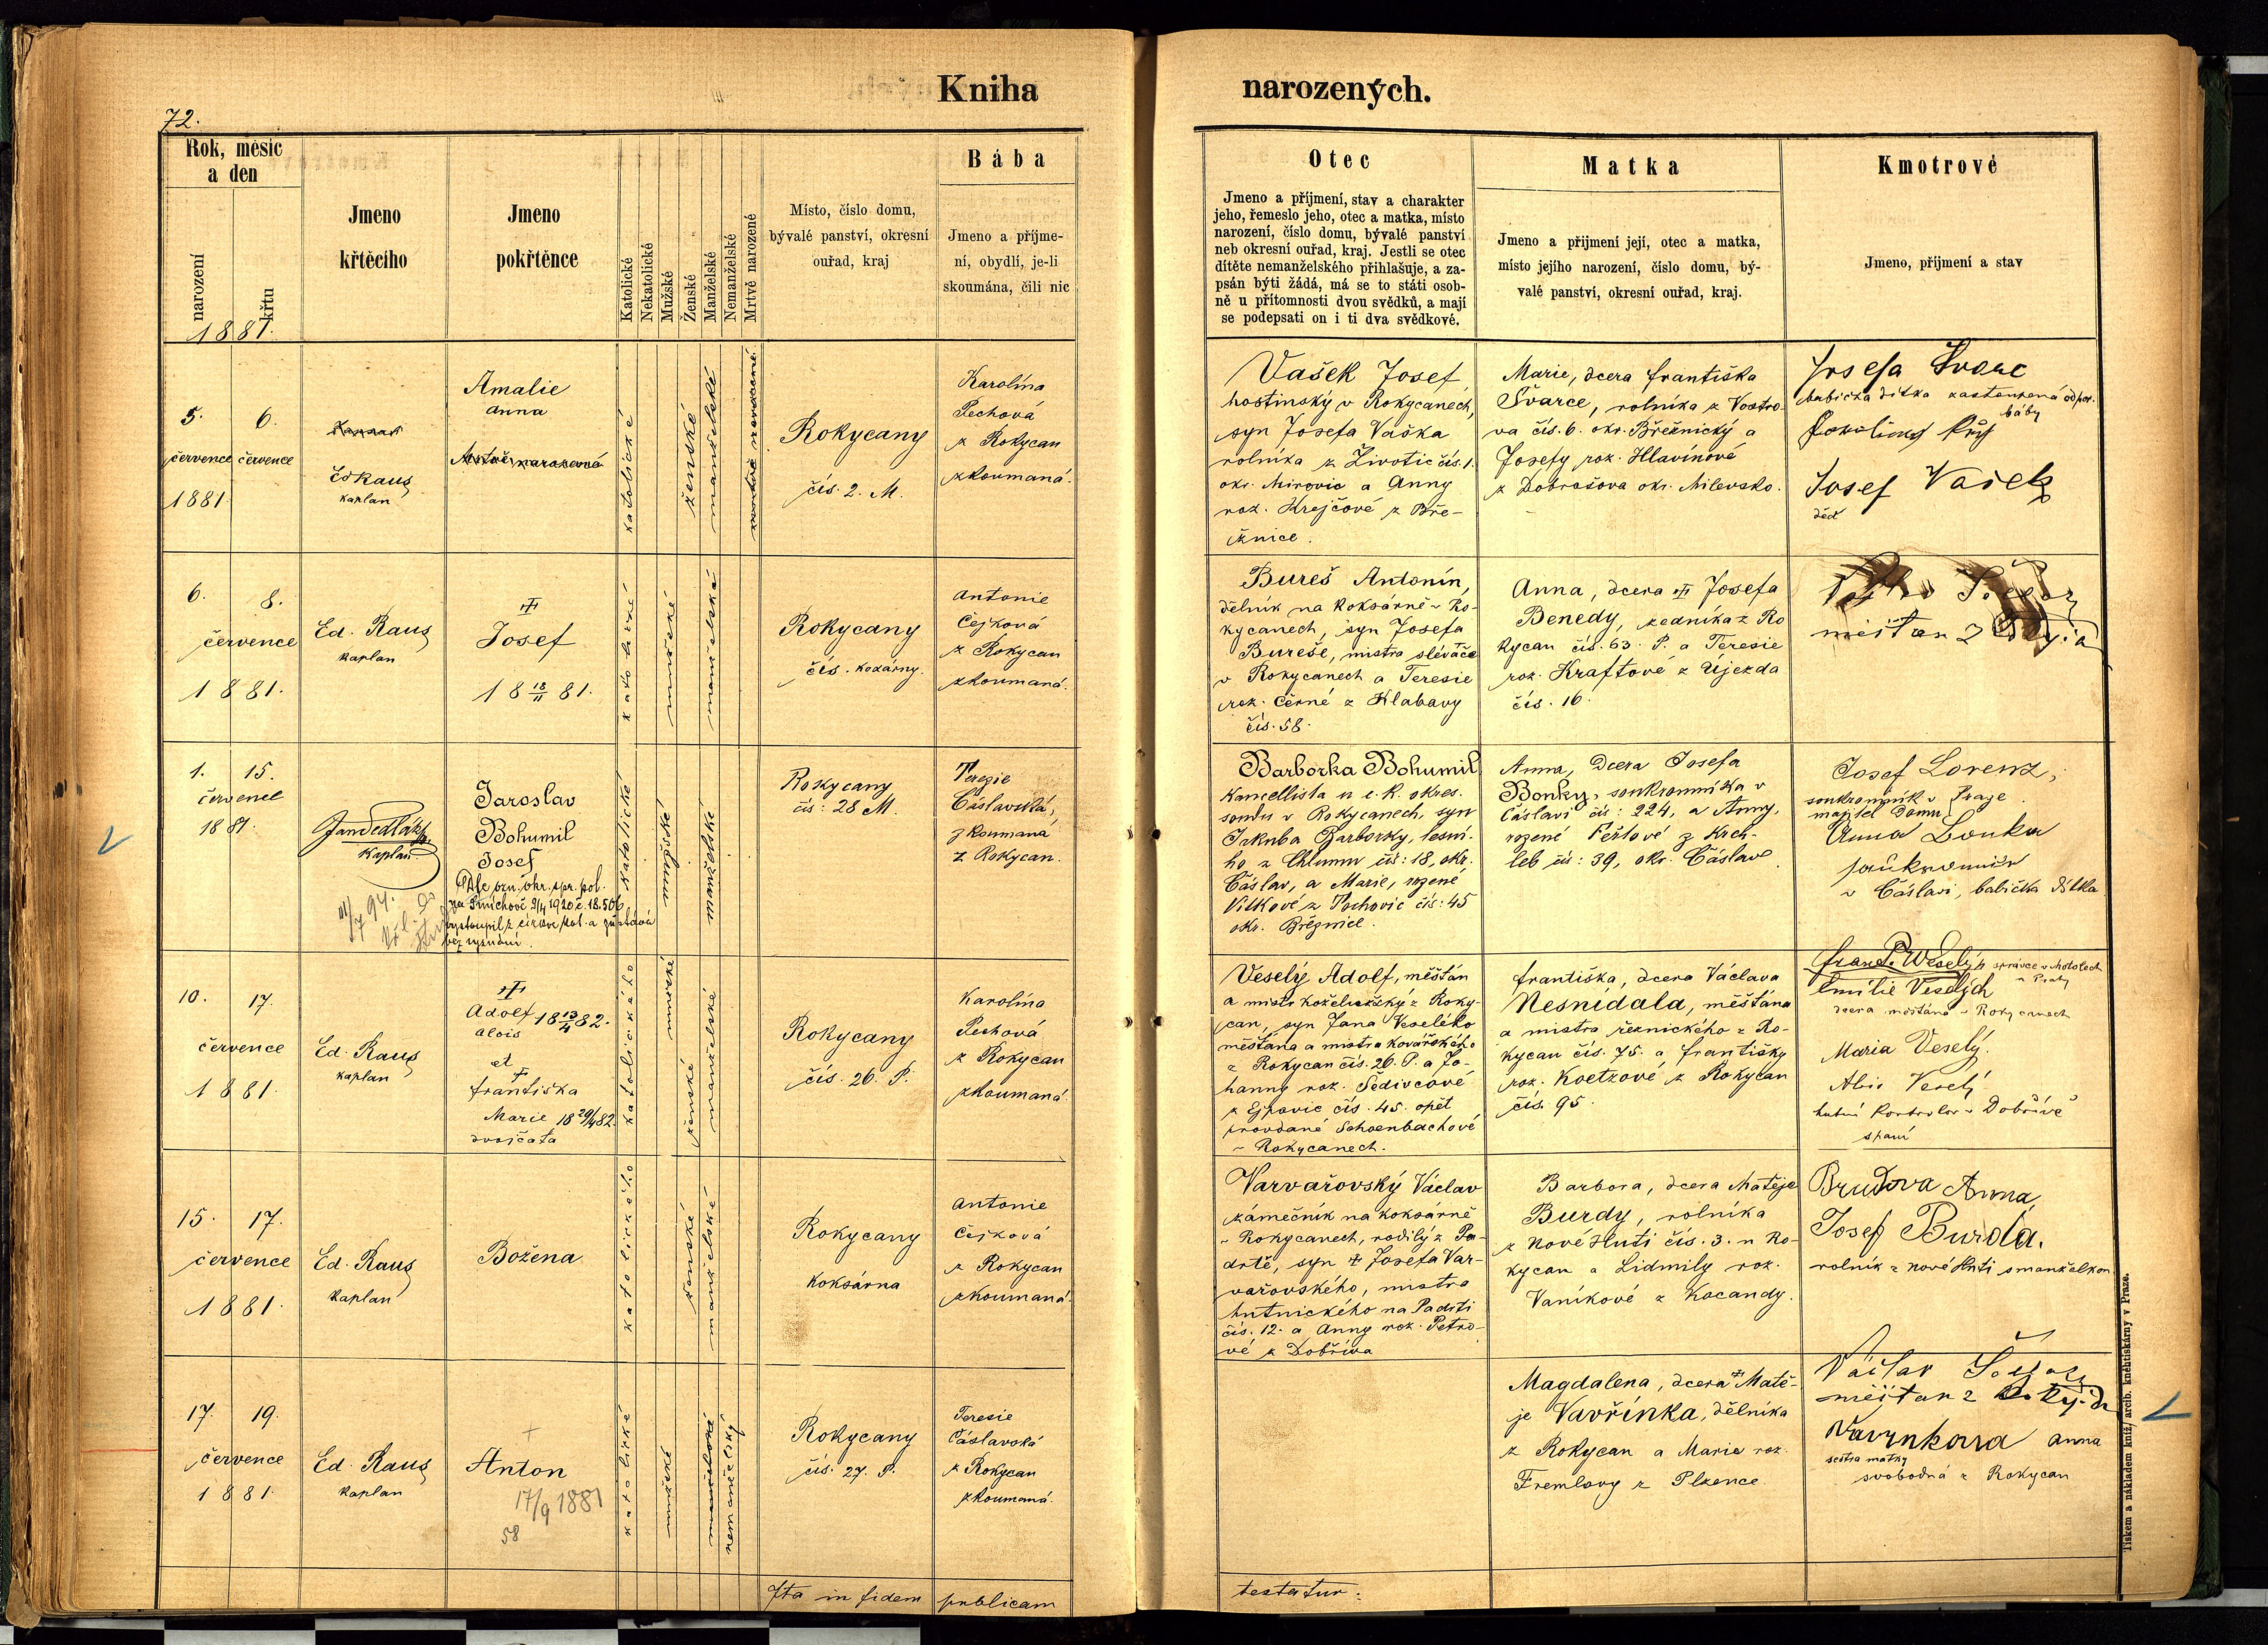 72.
Kniha
narozených.
Rok, měsíc
a den
narození
křtu
1881.
Jmeno
křtěcího
Jmeno
pokřtěnce
Katolické
Nekatolické
Mužské
Ženské
Manželské
Nemanželské
Mrtvě narozené
Místo, číslo domu,
bývalé panství, okresní
ouřad, kraj
Bába
Jmeno a příjme-
ní, obydlí, je-li
skoumána, čili nic
Otec
Jmeno a příjmení, stav a charakter
jeho, řemeslo jeho, otec a matka, místo
narození, číslo domu, bývalé panství
neb okresní ouřad, kraj. Jestli se otec
dítěte nemanželského přihlašuje, a za-
psán býti žádá, má se to státi osob-
ně u přítomnosti dvou svědků, a mají
se podepsati on i ti dva svědkové.
Matka
Jmeno a přijmení její, otec a matka,
místo jejího narození, číslo domu, bý-
valé panství, okresní ouřad, kraj.
Kmotrové
Jmeno, příjmení a stav
5. 6.
července července
1881.
Ed Raus
kaplan
Amalie
Anna
Mrtvě narozená
katolické
ženské
manželské
mrtvě narozené
Rokycany
čís. 2. M.
Karolína
Pechová
z Rokycan
zkoumaná.
Vašek Josef,
hostinský v Rokycanech,
syn Josefa Vaška
rolníka z Životic čís. 1.
okr. Mirovic a Anny
roz. Krejčové z Bře-
žnice.
Marie, dcera Františka
Švarce, rolníka z Vostro-
va čís. 6. okr. Březnický a
Josefy roz. Hlavínové
z Dobrošova okr. Milevsko.
Josefa Švarc
babička dítka zastoupená od por.
báby
Josef Vašek
děd
6. 8.
července
1881.
Ed. Raus
kaplan
Josef
18 18/11 81.
mužské
manželské
Rokycany
čís. koxárny.
Antonie
Čejková
z Rokycan
zkoumaná.
Bureš Antonín,
dělník na koksárně v Ro-
kycanech, syn Josefa
Bureše, mistra slévače
v Rokycanech a Teresie
roz. Černé z Klabavy
čís. 58.
Anna, dcera Josefa
Benedy, zedníka z Ro
kycan čís. 63. P. a Teresie
roz. Kraftové z Újezda
čís. 16.
měšťan z
1. 15.
červenec
1881.
Jan Sedláček
kaplan
Jaroslav
Bohumil
Josef
Dle ozn. okr. spr. pol.
na Smíchově 9/4 1920 č. 18.506
vystoupil z církve kat. a zůstává
bez vyznání.
katolické
mužské
manželské
Rokycany
čís: 28 M.
Terezie
Čáslavská,
zkoumana
z Rokycan.
Barborka Bohumil
kancellista u c. k. okres.
soudu v Rokycanech, syn
Jakuba Barborky, lesní-
ho z Chlumu čís: 18, okr.
Čáslav, a Marie, rozené
Vítkové z Tochovic čís: 45
okr. Březnice.
Anna, Dcera Josefa
Bonky, soukromníka v
Čáslavi čís: 224, a Anny,
rozené Peštové z Krch-
leb čís: 39, okr. Čáslav
Josef Lorenz,
soukromník v Praze
majitel Domu
Anna Bonka
v Čáslavi, babička Dítka
10. 17.
července
1881.
Ed. Raus
kaplan
Adolf 18 13/4 82.
Alois
et
Františka
Marie 18 29/4 82.
dvojčata
katolického
mužské
ženské
manželské
Rokycany
čís. 26. P.
Karolína
Pechová
z Rokycan
zkoumaná.
Veselý Adolf, měšťan
a mistr koželužský z Roky-
can, syn Jana Veselého
měšťana a mistra kovářského
z Rokycan čís. 26. P. a Jo-
hanny roz. Šedivcové
z Ejpovic čís. 45. opět
provdané Schoenbachové
v Rokycanech.
Františka, dcera Václava
Nesnídala, měšťana
a mistra řeznického z Ro-
kycan čís. 75. a Františky
roz. Koetzové z Rokycan
čís. 95.
Frant. Veselý správce v Motolech
u Prahy
Emilie Veselých
dcera měšťana v Rokycanech
Maria Veselý.
Alois Veselý
hutní kontrolor v Dobřívě
s paní
15. 17.
července
1881.
Ed. Raus
kaplan
Božena
katolického
ženské
manželské
Rokycany
Koksárna
Antonie
Čejková
z Rokycan
zkoumaná.
Varvařovský Václav
zámečník na koksárně
v Rokycanech, rodilý z Pa-
drtě, syn Josefa Var-
vařovského, mistra
hutnického na Padrti
čís. 12. a Anny roz. Petro-
vé z Dobříva
Barbora, dcera Matěje
Burdy, rolníka
z Nové Huti čís. 3. u Ro-
kycan a Lidmily roz.
Vaníkové z Kocandy.
Brudova Anna
Josef Burda.
rolník z Nové Huti s manželkou
17. 19.
července
1881.
Ed. Raus
kaplan
Anton
17/9 1881
58
katolické
mužské
manželské
nemanželský
Rokycany
čís. 27. P.
Teresie
Čáslavská
z Rokycan
zkoumaná.
Magdalena, dcera Matě-
je Vavřínka, dělníka
z Rokycan a Marie roz.
Fremlovy z Plzence.
Václav
měšťan z
Vavřinkova Anna
sestra matky
svobodná z Rokycan
Ita in fidem publicam
testatur.
Tiskem a nákladem kníž. arcib. kněhtiskárny v Praze.